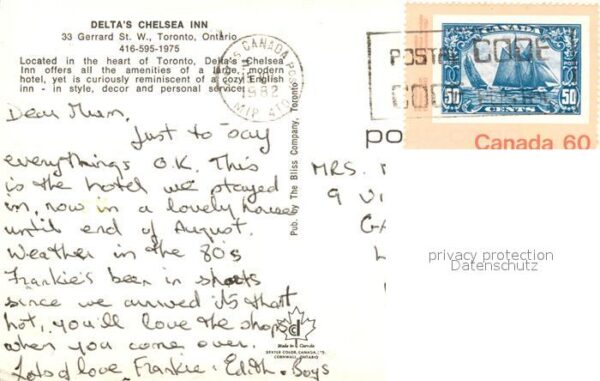 DELTA'S CHELSEA INN
33 Gerrard St. W., Toronto, Ontario
416-595-1975
Located in the heart of Toronto, Delta's Chelsea
Inn offers all the amenities of a large, modern
hotel, yet is curiously reminiscent of a cozy English
inn - in style, decor and personal service.
Dear Mum,
Just to say
everythings O.K. This
is the hotel we stayed
in, now in a lovely house
until end of August.
Weather in the 80's
Frankie's been in shorts
since we arrived its that
hot, you'll love the shops
when you come over.
Lots of love Frankie. Edith. Boys
Pub. by The Bliss Company, Toronto
Made in Canada
DEXTER COLOR, CANADA, LTD.
CORNWALL, ONTARIO
CANADA POST
1982
POSTAL CODE
CODE
CANADA
50 50
CENTS
Canada 60
po
MRS.
9
privacy protection
Datenschutz